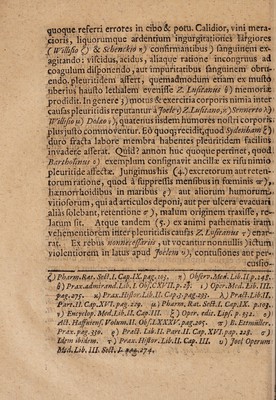 quoque referri errores in cibo & potu. Calidior, vini mera-
cioris, liquorumque ardentium ingurgitationes largiores
(Willisio ζ) & Schenckio η) confirmantibus) sanguinem ex-
agitando: viscidus, acidus, aliaque ratione incongruus ad
coagulum disponendo, aut impuritatibus sanguinem obru-
endo, pleuritidem assert, quemadmodum etiam ex musto
liberius hausto lethalem evenisse Z. Lusitanus θ) memoriæ
prodidit. In genere 3) motus & exercitia corporis nimia inter
causas pleuritidis reputantur à Joele ι) Z. Lusitano, κ) Sennerto λ)
Willisio μ) Dolæo ν), quatenus iisdem humores nostri corporis
plus justo commoventur. Eò quoq; recidit, quod Sydenham ξ)
duro fracta labore membra habentes pleuritidem facilius
invadere asserat. Quid? annon huc quoque pertinet, quod
Bartholinus ο) exemplum consignavit ancillæ ex risu nimio
pleuritide affectæ. Jungimus his (4) excretorum aut reten-
torum ratione, quod à suppressis mensibus in fœminis π),
hæmorrhoidibus in maribus ρ) aut aliorum humorum
vitiosorum, qui ad articulos deponi, aut per ulcera evacuari
aliàs solebant, retentione σ), malum originem traxisse, re-
latum sit. Atque tandem (5.) ex animi pathematis iram
vehementiorem inter pleuritidis causas Z. Lusitanus τ) enar-
rat. Ex rebus nonnecessariis, ut vocantur nonnullis ) ictum
violentiorem in latus apud Joelem υ), contusiones aut per-
cussio-
ζ) Pharm. Rat. Sect. I. Cap. IX. pag. 103. η) Observ. Med. Lib. II p. 248.
θ) Prax. admirand. Lib. I. Obs. CXVII. p. 27. ι) Oper. Med. Lib. III.
pag. 275. κ) Prax. Histor. Lib. II. Cap. 3. pag. 233. λ) Pract. Lib. II.
Part. II. Cap. XVI. pag. 229. μ) Pharm. Rat. Sect. I. Cap. IX. p. 103.
ν) Encyclop. Med. Lib. II. Cap. III ξ) Oper. edit. Lips. p. 352. ο)
Act. Haffniens. Volum. II. Obs. LXXXV. pag. 205. π) B. Ettmüller.
Prax. pag. 330. ρ) Pract. Lib. II Part. II. Cap. XVI. pag. 228. σ)
Idem ibidem. τ) Prax. Histor. Lib. II. Cap. III. υ) Joel Operum
Med. Lib. III. Sect. I. pag. 274.